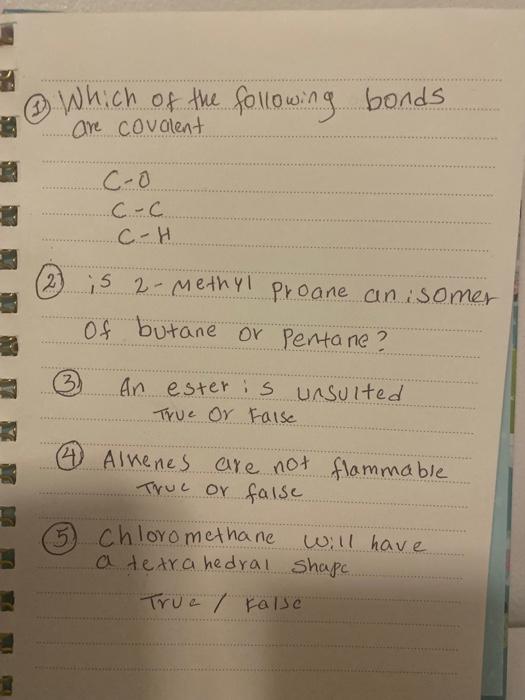 ① Which of the following bonds
are covalent
C-O
C-C
C-H
② is 2-Methyl Proane an isomer
Of butane or Pentane?
③ An ester is unsulted
True Or False
④ Alkenes are not flammable
True or false
⑤ Chloromethane will have
a tetrahedral shape
True / False